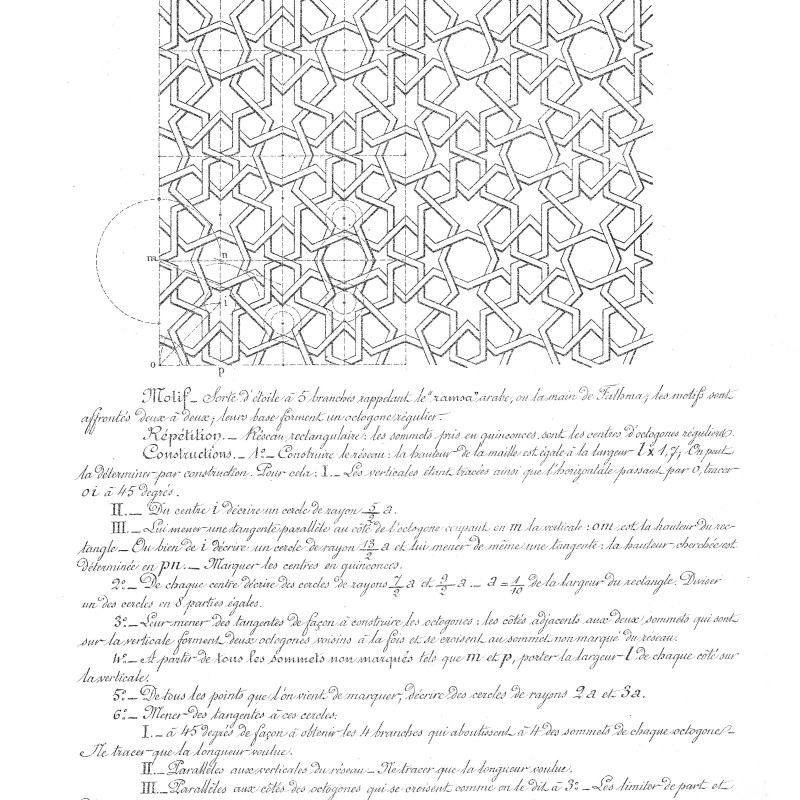 m
n
i
o
p
Motif _ Sorte d'étoile à 5 branches rappelant le "ramsa" arabe, ou la main de Fathma; les motifs sont
affrontés deux à deux; leurs base forment un octogone régulier._
Répétition. _ Réseau rectangulaire: les sommets pris en quinconces, sont les centres d'octogones réguliers.
Constructions. _ 1º_ Construire le réseau: la hauteur de la maille est égale à la largeur l x 1,7; On peut
la déterminer par construction. Pour cela: I._ Les verticales étant tracées ainsi que l'horizontale passant par o, tracer
oi à 45 degrés.
II._ Du centre i décrire un cercle de rayon 5/2 a.
III._ Lui mener une tangente parallèle au côté de l'octogone coupant en m la verticale: om est la hauteur du rec-
tangle _ Ou bien de i décrire un cercle de rayon 13/2 a et lui mener de même une tangente: la hauteur cherchée est
déterminée en pn._ Marquer les centres en quinconces.
2º_ De chaque centre décrire des cercles de rayons 7/2 a et 9/2 a _ a = 1/10 de la largeur du rectangle. Diviser
un des cercles en 8 parties égales.
3º_ Leur mener des tangentes de façon à construire les octogones: les côtés adjacents aux deux sommets qui sont
sur la verticale forment deux octogones voisins à la fois et se croisent au sommet non marqué du réseau.
4º_ A partir de tous les sommets non marqués tels que m et p, porter la largeur l de chaque côté sur
la verticale.
5º_ De tous les points que l'on vient de marquer, décrire des cercles de rayons 2a et 3a.
6º_ Mener des tangentes à ces cercles:
I._ à 45 degrés de façon à obtenir les 4 branches qui aboutissent à 4 des sommets de chaque octogone_
_Ne tracer que la longueur voulue.
II._ Parallèles aux verticales du réseau _ Ne tracer que la longueur voulue.
III._ Parallèles aux côtés des octogones qui se croisent comme on le dit à 3º_ Les limiter de part et